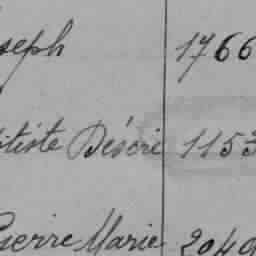 seph 1766
tiste Désiré 1153
Pierre Marie 2049